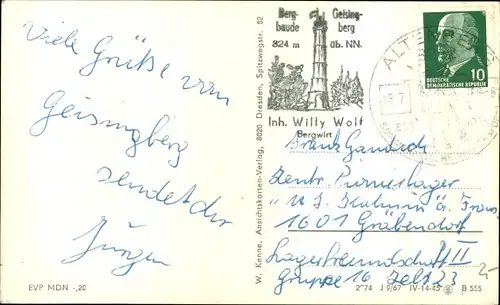 Viele Grüße vom
Geisingberg
sendet dir
Jürgen
EVP MDN -,20
W. Kenne, Ansichtskarten-Verlag, 8020 Dresden, Spitzwegstr. 82
Berg- Geising-
baude berg
824 m üb. NN.
Inh. Willy Wolf
Bergwirt
10
DEUTSCHE
DEMOKRATISCHE REPUBLIK
ALTENBERG
Frank
Zentr. Pionierlager
1601 Gräbendorf
Lagerfreundschaft II
Gruppe 16 Zelt 123
2"74 J 9/67 IV-14-45 B 555